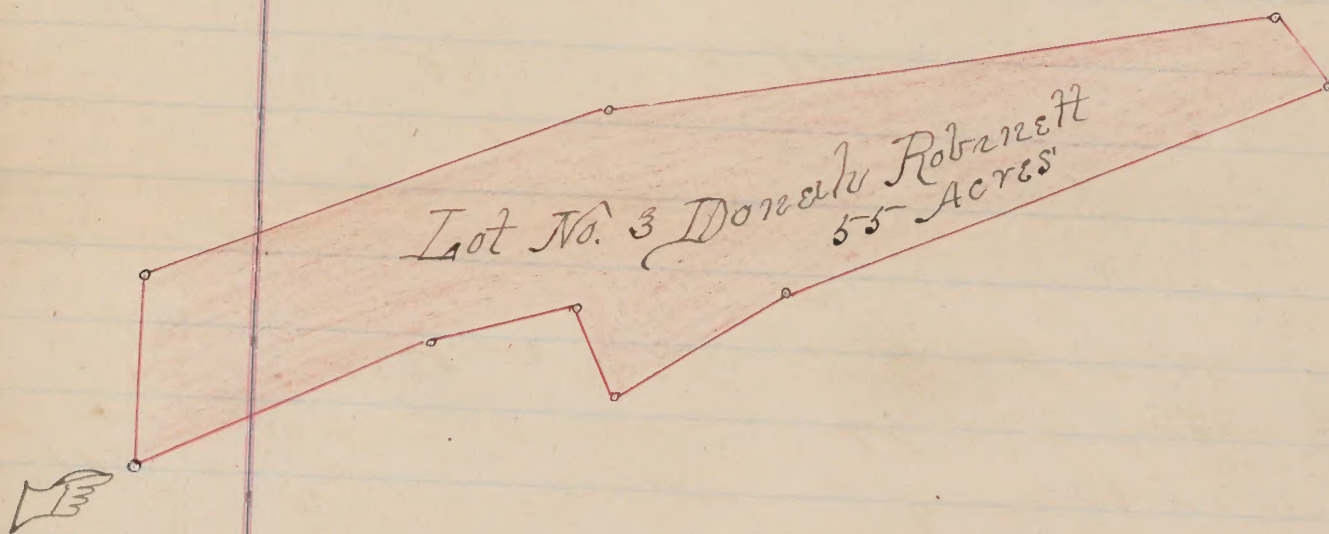 Lot No. 3 Donelu Robnett
55 Acres